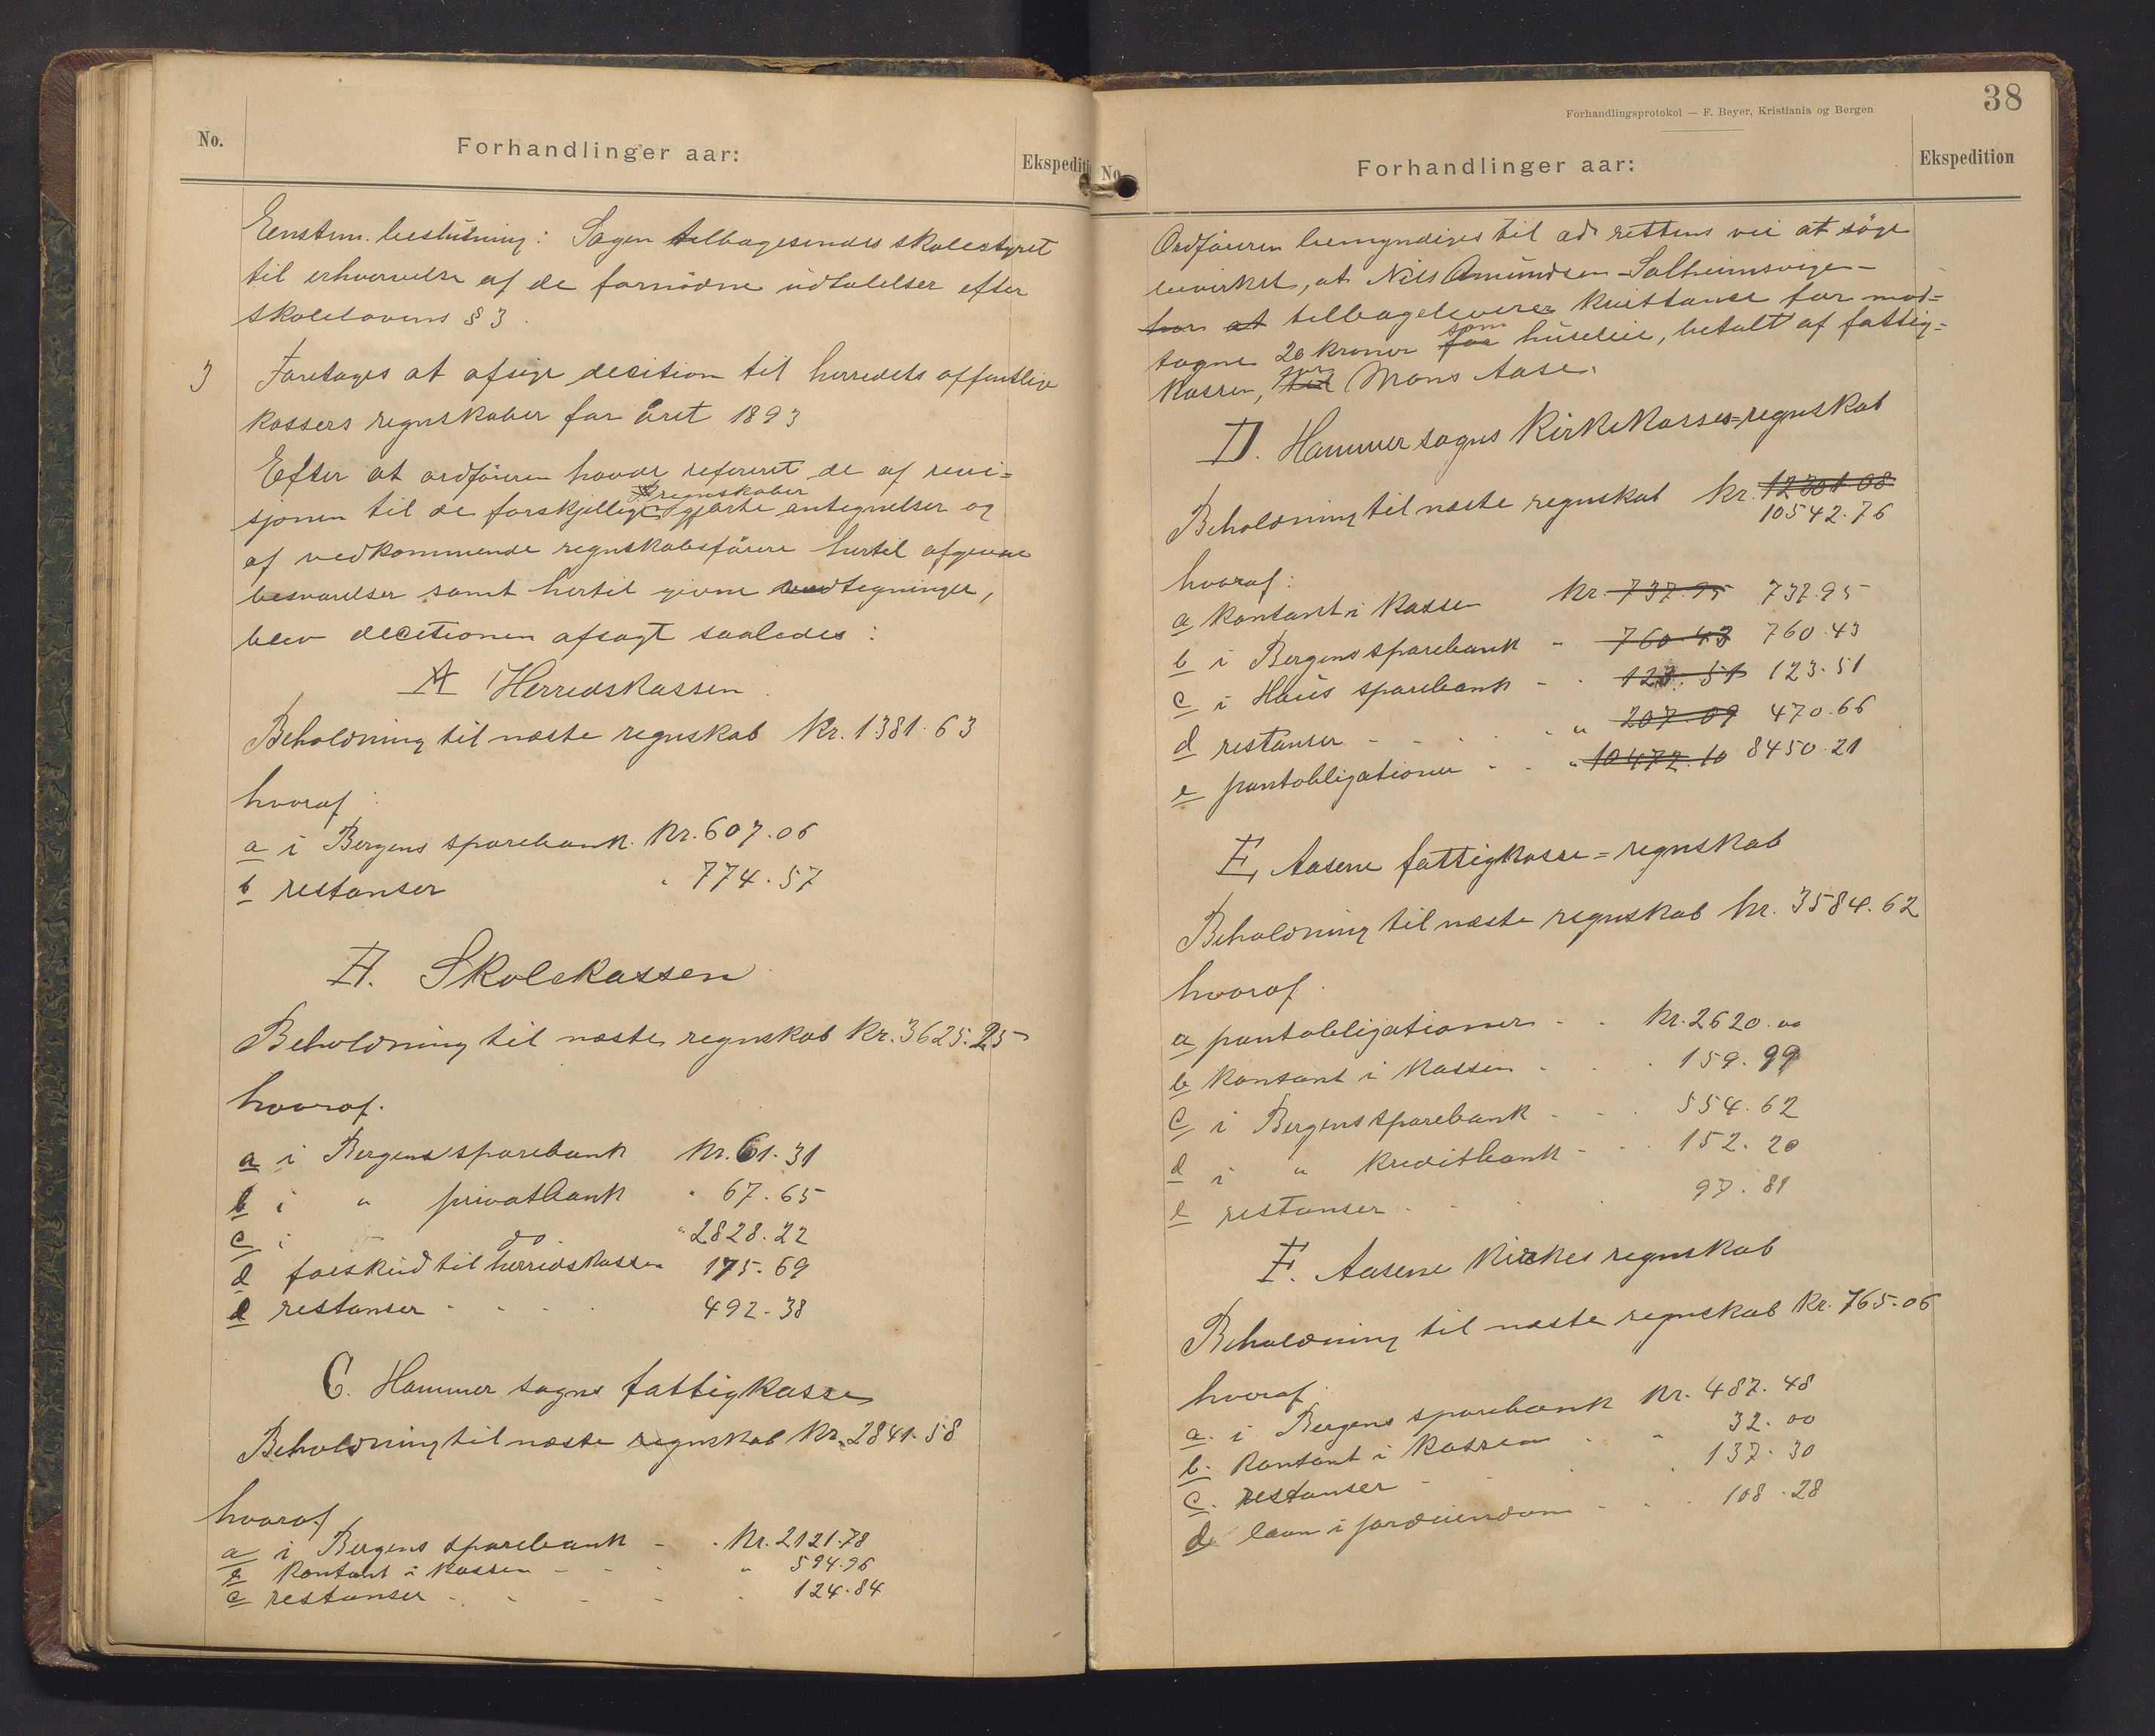 No.
Forhandlinger aar:
Ekspediti
Eenstem. beslutning: Sagen tilbagesendes skolestyret
til erhvervelse af de fornödne udtalelser efter
skolelovens § 3.
3 Foretages at afsige decition til herredets offentlige
kassers regnskaber for året 1893
Efter at ordföreren havde refereret de af revi=
sjonen til de forskjellige regnskaber gjorte antegnelser og
af vedkommende regnskabsförere hertil afgivne
besvarelser samt hertil givne vedtegninger,
blev decitionen afsagt saaledes:
A Herredskassen.
Beholdning til næste regnskab Kr. 1381.63
hvoraf:
a i Bergens sparebank. Kr. 607.06
b restanser " 774.57
B. Skolekassen
Beholdning til næste regnskab Kr. 3625.25
hvoraf.
a i Bergens sparebank Kr. 61.31
b i " privatbank " 67.65
c i " do " 2828.22
d forskud til herredskassen 175.69
e restanser - - - 492.38
C. Hammer sogns fattigkasse
Beholdning til næste regnskab Kr. 2841.58
hvoraf
a i Bergens sparebank - - Kr. 2121.78
b Kontant i kassen - - - " 594.96
c restanser - - - - - 124.84
38
Forhandlingsprotokol — F. Beyer, Kristiania og Bergen
No.
Forhandlinger aar:
Ekspedition
Ordföreren bemyndiges til ad rettens vei at söge
bevirket, at Nils Amundsen Solheimsvigen-
for at tilbageleverer kvittanse for mod=
tagne 20 kroner for som husleie, betalt af fattig=
kassen, til for Mons Aase.
D. Hammer sogns Kirkekasses=regnskab
Beholdning til næste regnskab Kr. 12301.08
10542.76
hvoraf:
a kontant i kassen Kr. 737.95 737.95
b i Bergens sparebank - 760.43 760.43
c i Haus sparebank - - 123.51 123.51
d restanser - - - - " 207.09 470.66
e pantobligationer - - " 10472.10 8450.21
E, Aasene fattigkasse=regnskab
Beholdning til næste regnskab kr. 3584.62
hvoraf.
a pantobligationer - - Kr. 2620.00
b kontant i kassen - - - 159.99
c i Bergens sparebank - - - 554.62
d i " kreditbank - - - 152.20
e restanser - - - 97.81
F. Aasene kirkes regnskab
Beholdning til næste regnskab Kr. 765.06
hvoraf:
a. i Bergens sparebank Kr. 487.48
b. kontant i kassen - - 32.00
c. restanser - - - 137.30
d. laan i jordeiendom - - - 108.28